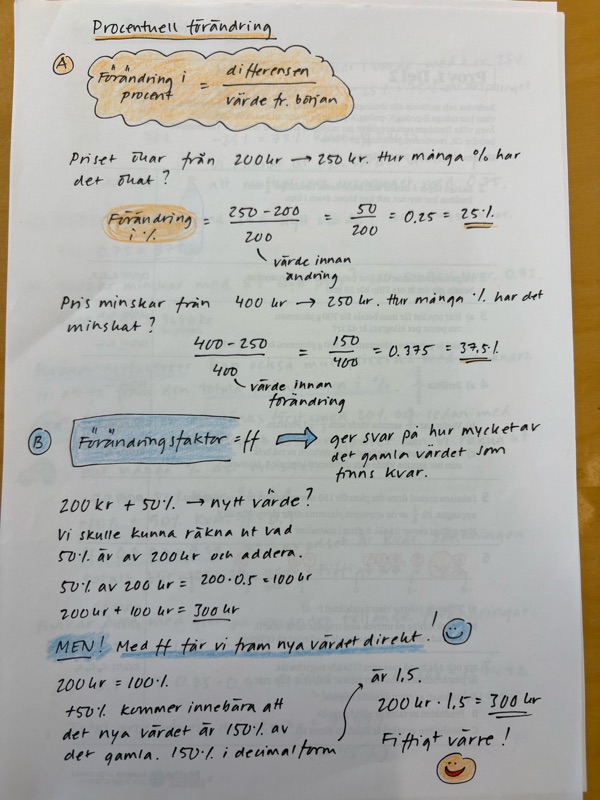 Procentuell förändring
A
Förändring i procent = differensen / värde fr. början
Priset ökar från 200 kr → 250 kr. Hur många % har
det ökat?
Förändring i % = 250 - 200 / 200 = 50 / 200 = 0.25 = 25%
värde innan
ändring
Pris minskar från 400 kr → 250 kr. Hur många % har det
minskat?
400 - 250 / 400 = 150 / 400 = 0.375 = 37.5%
värde innan
förändring
B
Förändringsfaktor = ff ⇒ ger svar på hur mycket av
det gamla värdet som
finns kvar.
200 kr + 50% → nytt värde?
Vi skulle kunna räkna ut vad
50% är av 200 kr och addera.
50% av 200 kr = 200 · 0.5 = 100 kr
200 kr + 100 kr = 300 kr
MEN! Med ff får vi fram nya värdet direkt!
200 kr = 100%
+50% kommer innebära att
det nya värdet är 150% av
det gamla. 150% i decimalform
är 1,5.
200 kr · 1,5 = 300 kr
Fiffigt värre!